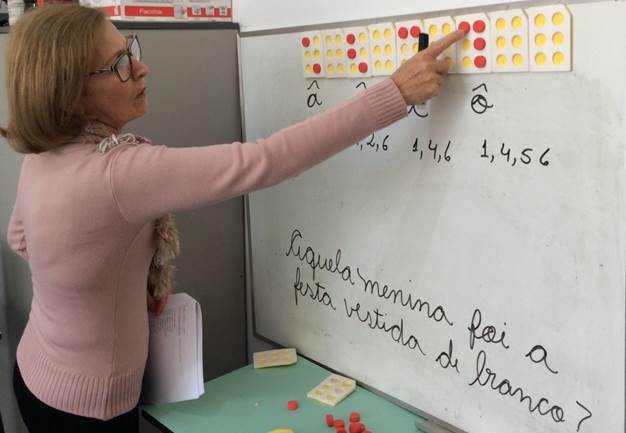 â ô
2,6 1,4,6 1,4,56
Aquela menina foi a
festa vestida de branco?